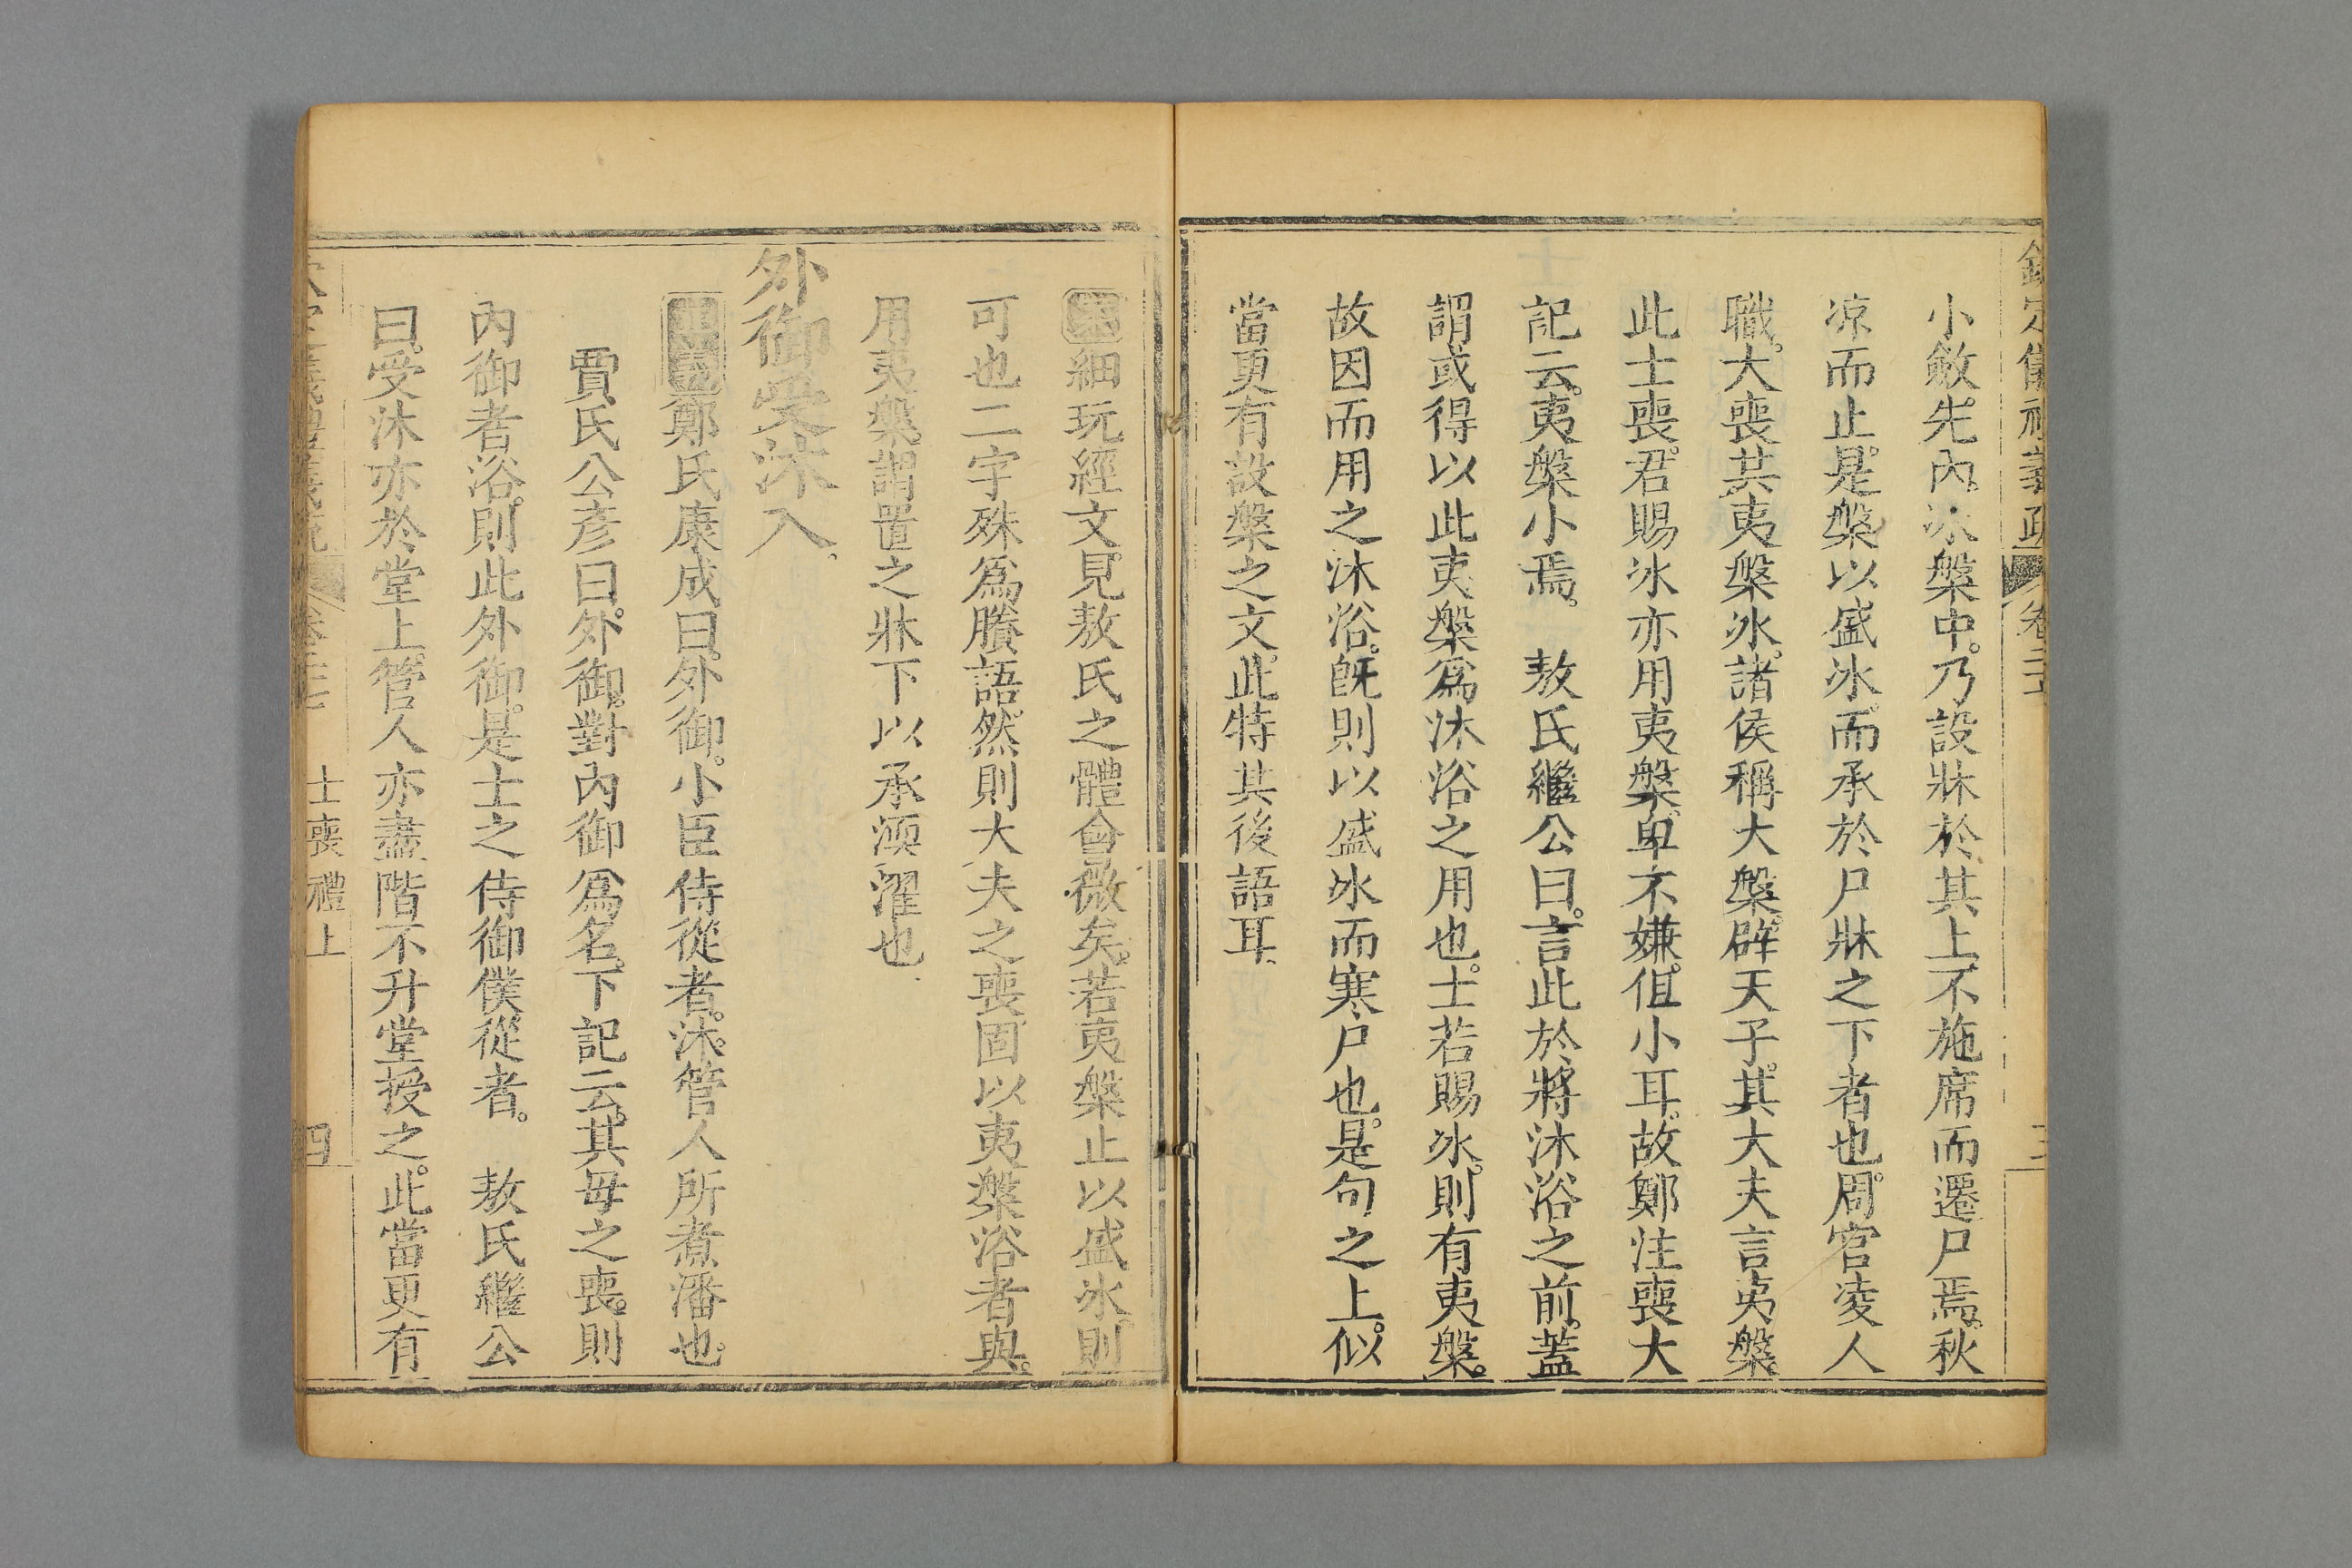 欽定儀禮義疏 卷二十七 三
小斂先內冰槃中乃設牀於其上不施席而遷尸焉秋
凉而止是槃以盛冰而承於尸牀之下者也周官凌人
職大喪共夷槃冰諸侯稱大槃辟天子其大夫言夷槃
此士喪君賜冰亦用夷槃卑不嫌但小耳故鄭注喪大
記云夷槃小焉 敖氏繼公曰言此於將沐浴之前蓋
謂或得以此夷槃為沐浴之用也士若賜冰則有夷槃
故因而用之沐浴既則以盛冰而寒尸也是句之上似
當更有設槃之文此特其後語耳
案細玩經文見敖氏之體會微矣若夷槃止以盛冰則
可也二字殊為賸語然則大夫之喪固以夷槃浴者與
用夷槃謂置之牀下以承渜濯也
外御受沐入
正義鄭氏康成曰外御小臣侍從者沐管人所煮潘也
賈氏公彥曰外御對內御為名下記云其母之喪則
內御者浴則此外御是士之侍御僕從者 敖氏繼公
曰受沐亦於堂上管人亦盡階不升堂授之此當更有
欽定儀禮義疏 卷二十七 士喪禮上 四